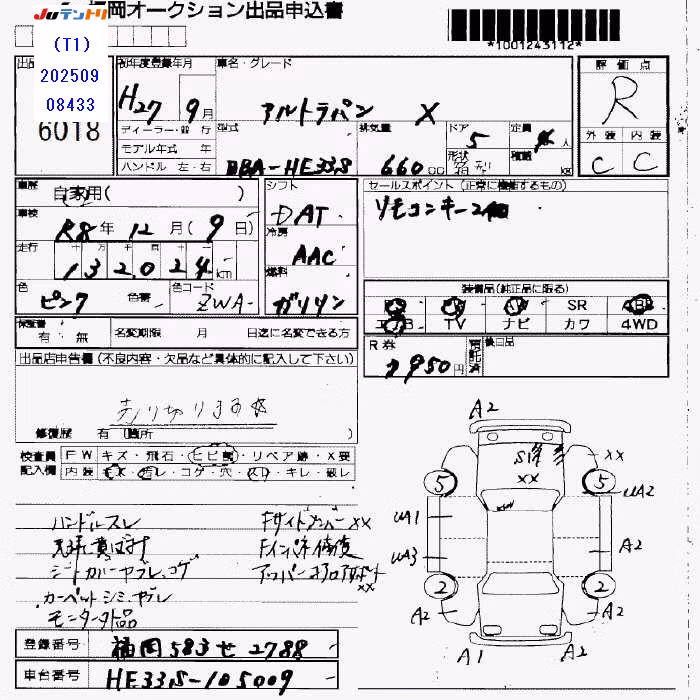 Juテントリ
福岡オークション出品申込書
(T1)
202509
08433
*1001243112*
出品
6018
初年度登録年月
H27 9月
ディーラー・並行
モデル年式 年
ハンドル 左・右
車名・グレード
アルトラパン X
型式
DBA-HE33S
排気量
660cc
ドア
5
形状
定員
4人
積載
kg
評価点
R
外装 内装
C C
車歴
自家用( )
車検
R8年12月(9日)
走行
132024km
色
ピンク
色番
色コード
ZWA-
シフト
DAT
冷房
AAC
燃料
ガソリン
セールスポイント(正常に機能するもの)
リモコンキー2個
装備品(純正品に限る)
SR
TV ナビ カワ 4WD
保証書
有・無
名変期限 月 日迄に名変できる方
R券
7950円
預託済
後日品
出品店申告欄(不良内容・欠品など具体的に記入して下さい)
売り切ります☆
修復歴 有(箇所 )
検査員記入欄
FW キズ・飛石・ヒビ割・リペア跡・X要
内装 コゲ・穴・キレ・破レ
ハンドルスレ
天張黄ばみ
シートカバーヤブレ、コゲ
カーペットシミ、ヤブレ
モニター欠品
Fサイドメンバーxx
Fインパネ修復
xx
A2
S1
xx
xx
5
5
UA2
UA1
UA3
A2
2
2
A2
A2
A1
A2
登録番号
福岡583せ2788
車台番号
HE33S-105009